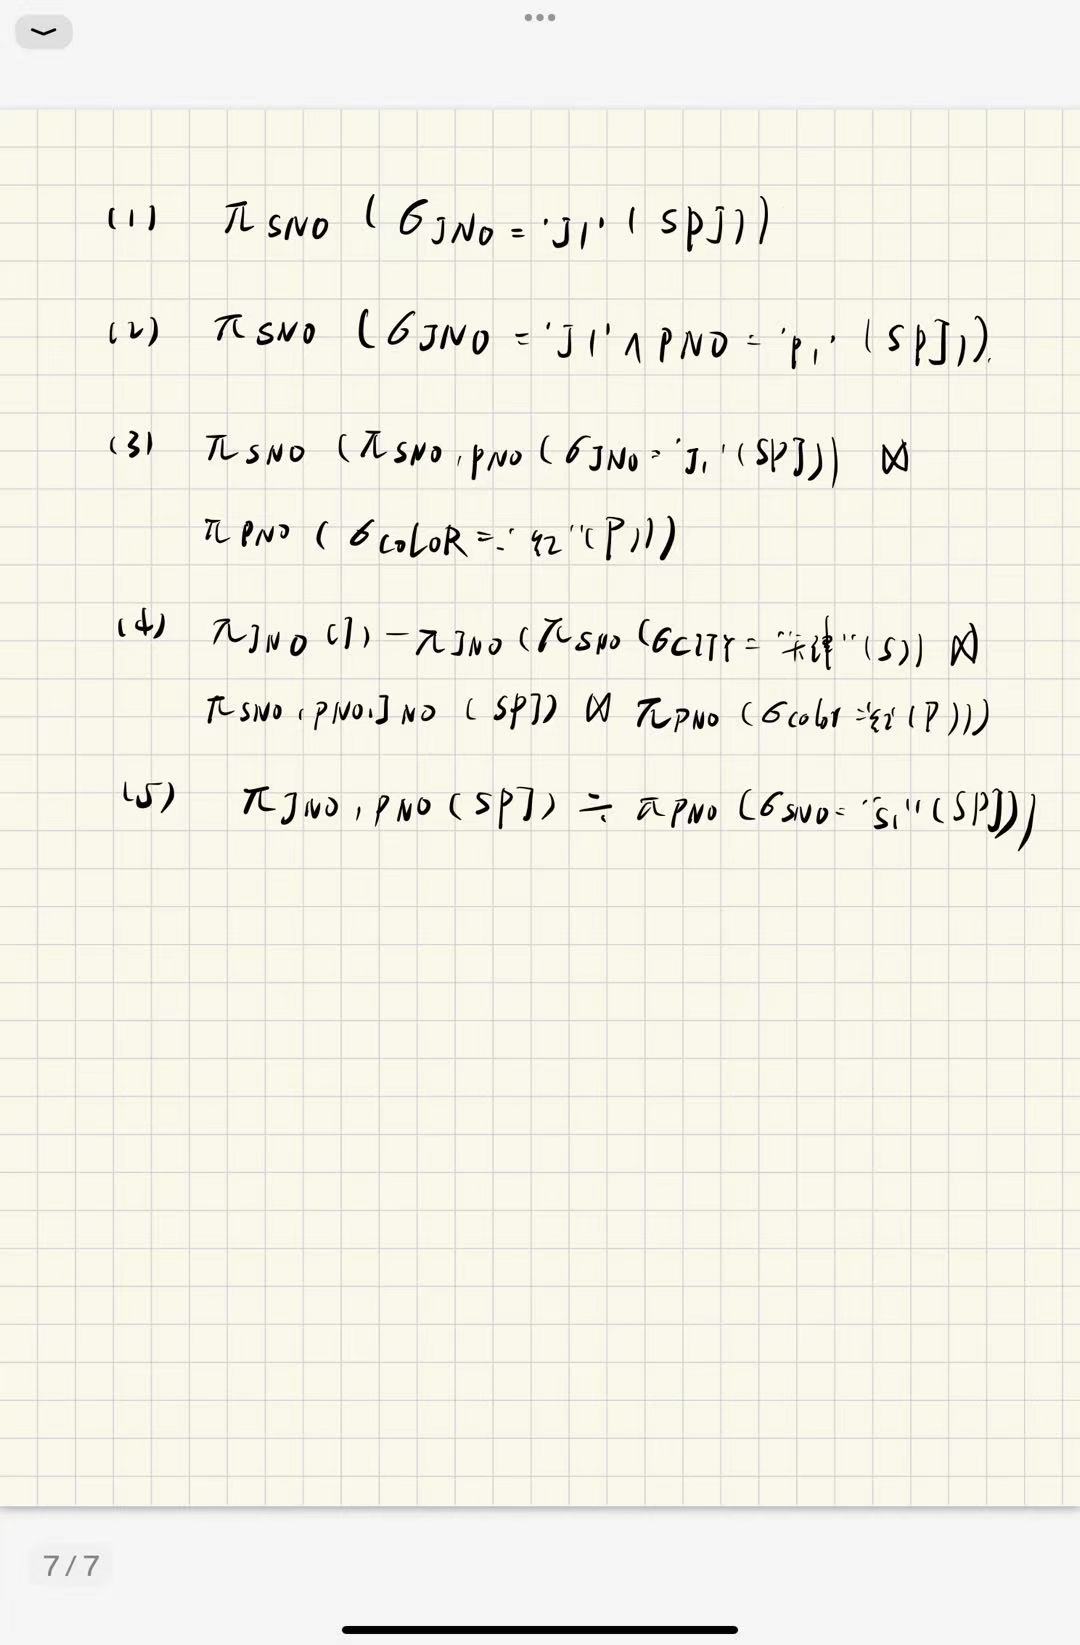 (1) π SNO (σ JNO = 'J1' (SPJ))
(2) π SNO (σ JNO = 'J1' ∧ PNO = 'P1' (SPJ)).
(3) π SNO (π SNO, PNO (σ JNO = 'J1' (SPJ)) ⋈
π PNO (σ COLOR = '红' (P)))
(4) π JNO (J) - π JNO (π SNO (σ CITY = '天津' (S)) ⋈
π SNO, PNO, JNO (SPJ) ⋈ π PNO (σ color = '红' (P)))
(5) π JNO, PNO (SPJ) ÷ π PNO (σ SNO = 'S1' (SPJ))
7 / 7